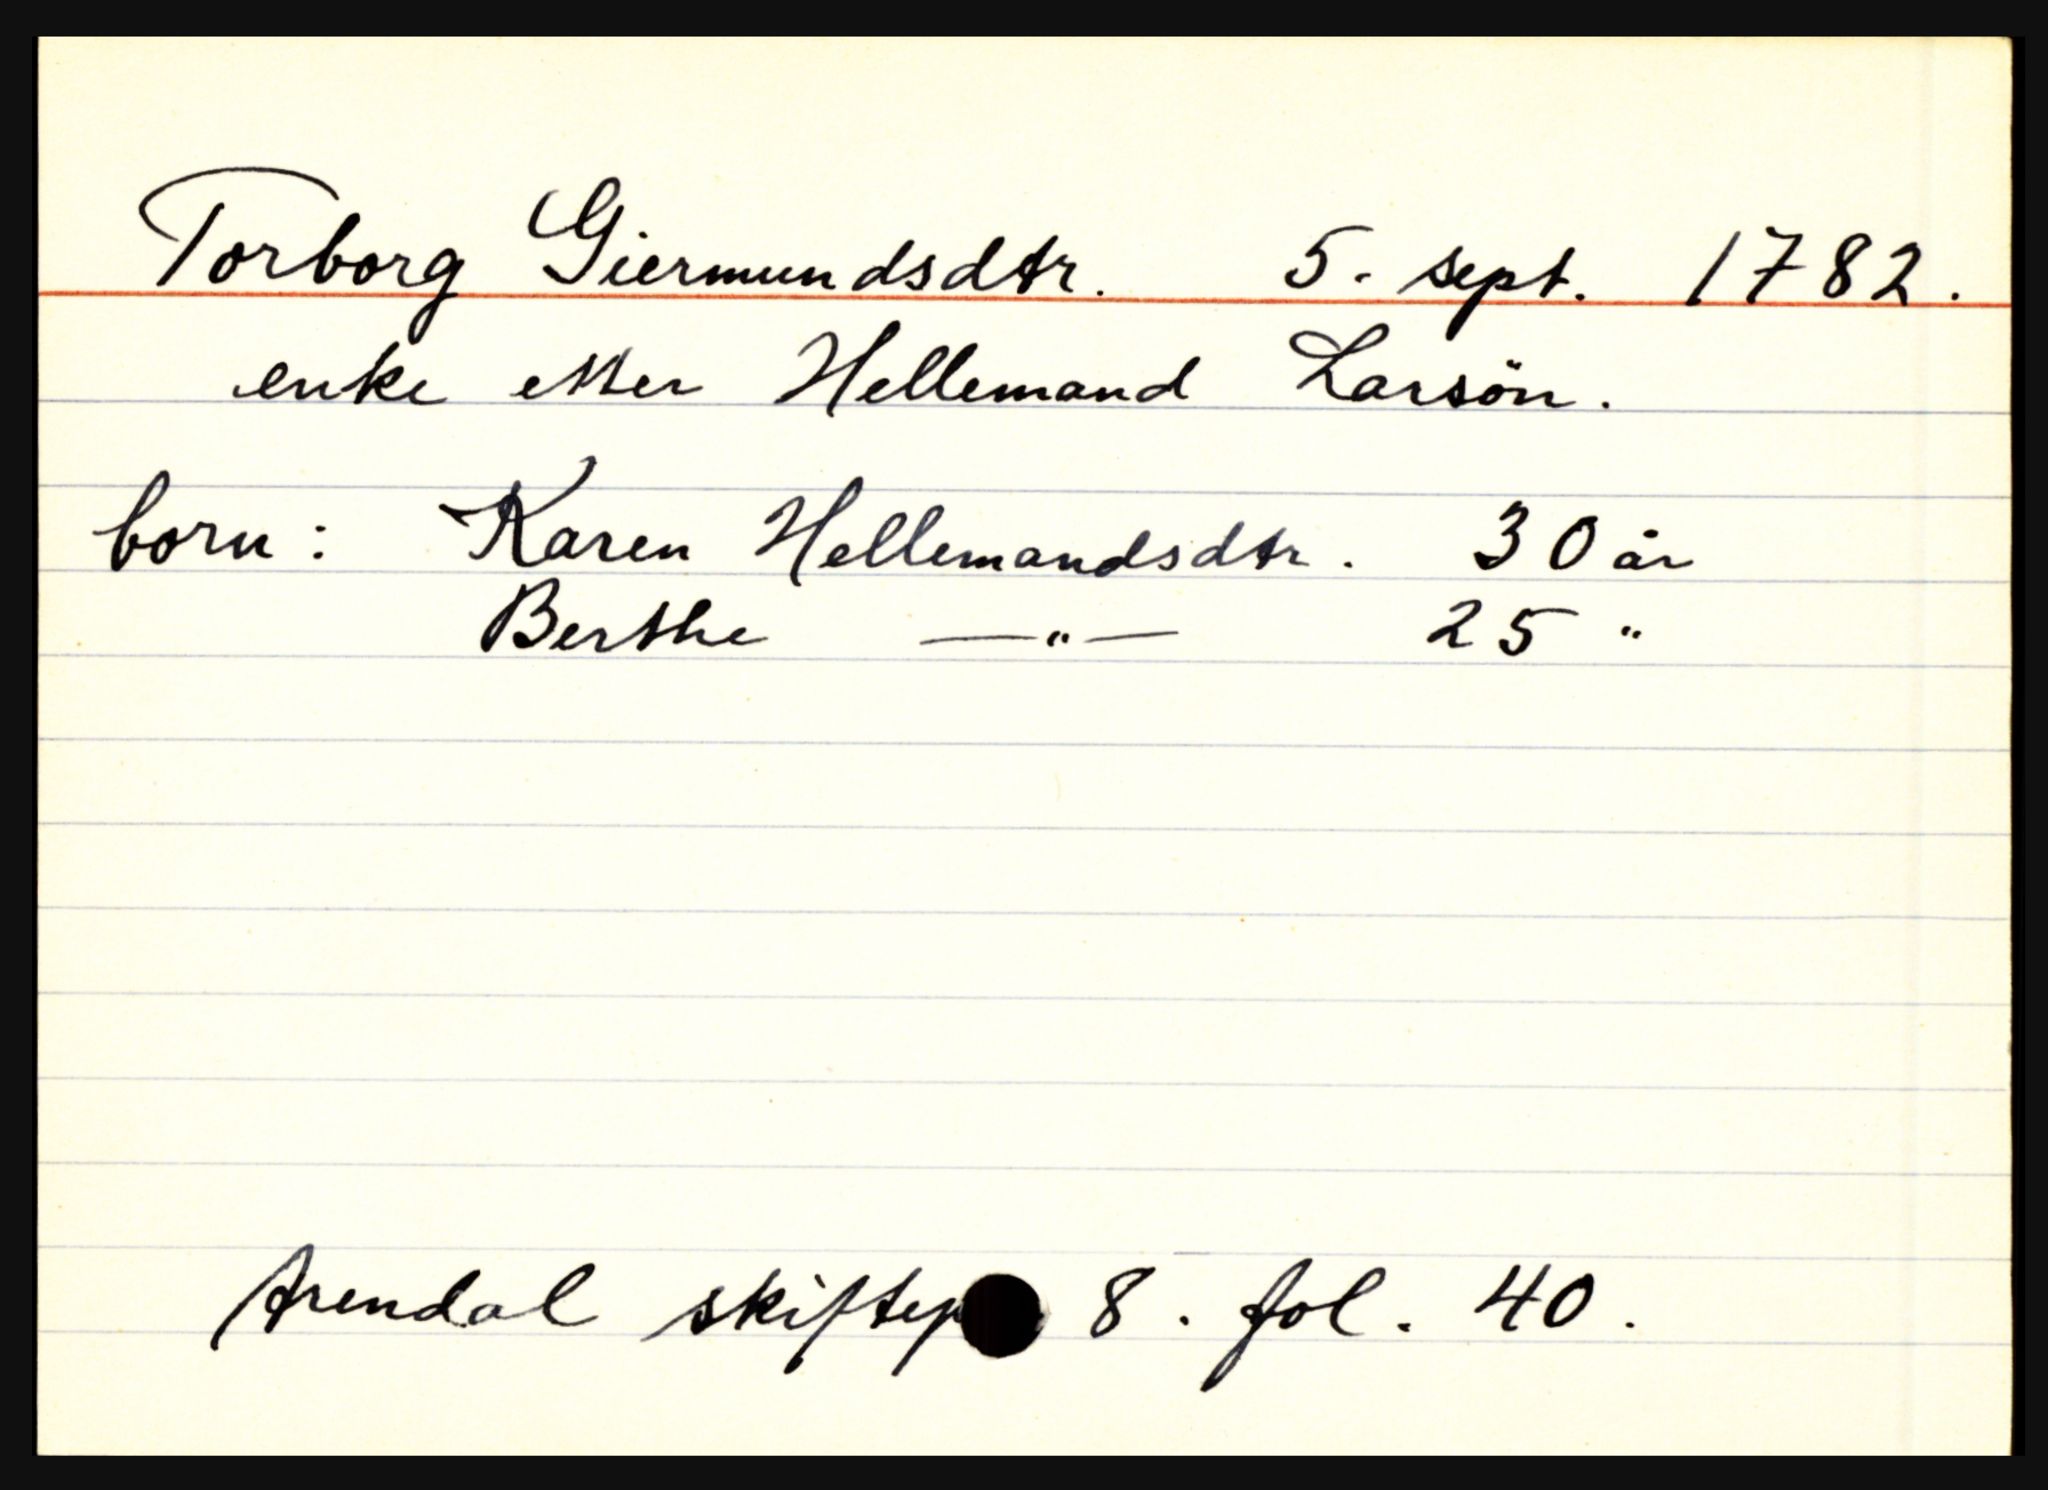 Torborg Giermundsdtr. 5. sept. 1782.
enke etter Hellemand Larsön.
born: Karen Hellemandsdtr. 30 år
Berthe —"— 25 "
Arendal skiftep 8. fol. 40.